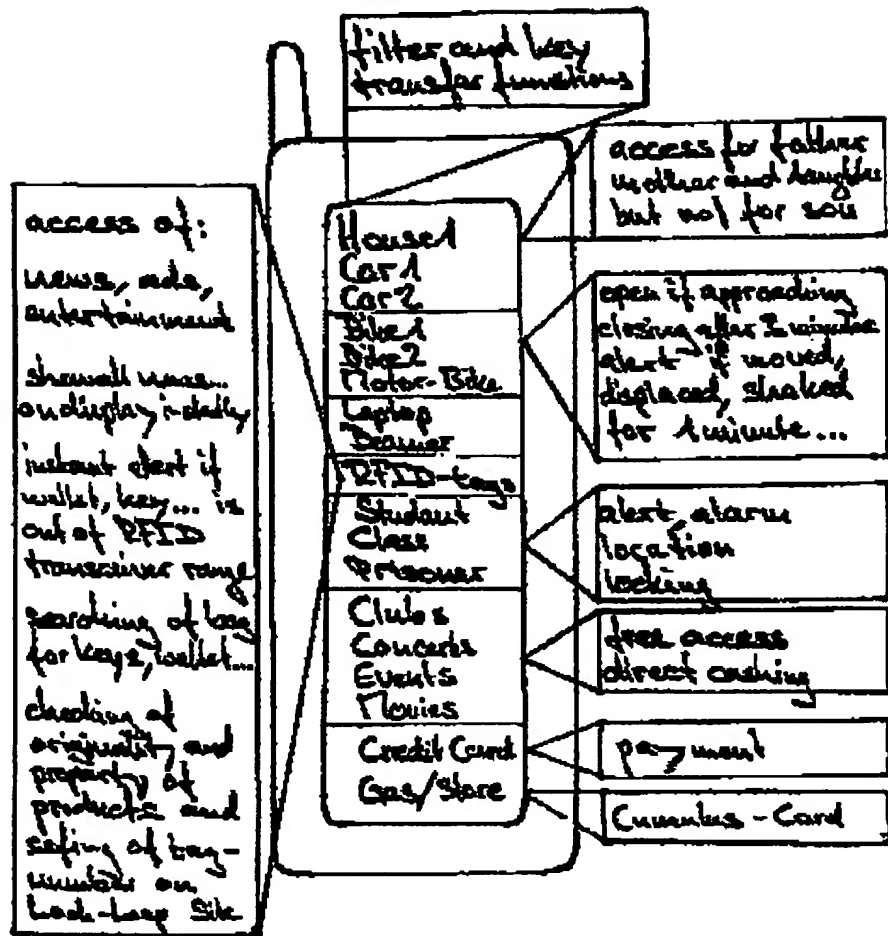 filter and key
transfer functions
access for father
mother and daughter
but not for son
access of:
news, ads,
entertainment
show all news...
on display instantly
instant alert if
wallet, key... is
out of RFID
transceiver range
searching of bag
for keys, wallet...
checking of
originality and
property of
products and
safing of tag-
number on
Lock-Loop Site
House1
Car1
Car2
Bike1
Bike2
Motor-Bike
Laptop
Beamer
RFID-tags
Student
Class
Prisoner
Clubs
Concerts
Events
Movies
Credit Card
Gas/Store
open if approaching
closing after minutes
alert if moved,
displaced, shaked
for 1 minute...
alert, alarm
location
locking
free access
direct cashing
payment
Cumulus-Card